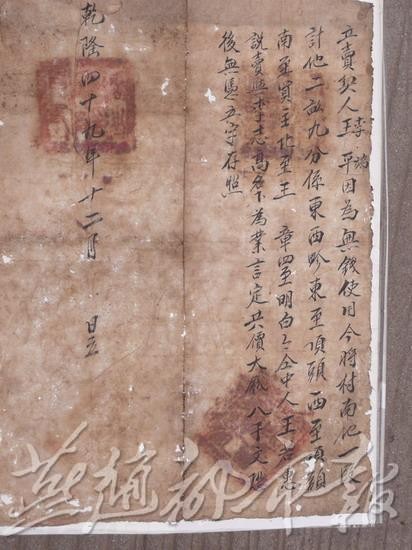 立賣契人王平因為無錢使用今將村南地一段
計地二畝九分係東西畛東至項頭西至項頭
南至買主北至王 章四至明白仝中人王志惠
說賣與李志高名下為業言定共價大錢八千文恐
後無憑立字存照
乾隆四十九年十二月 日立
燕趙都市報